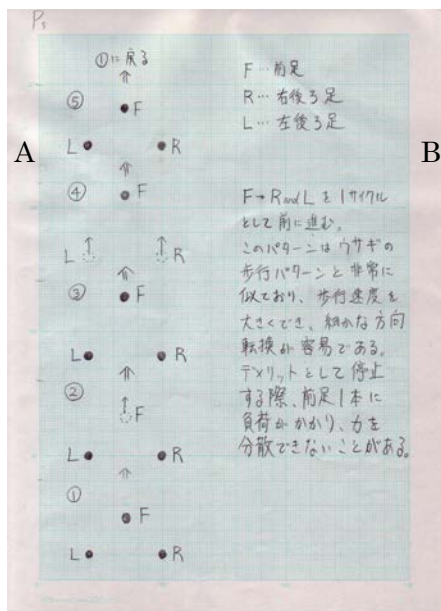 Ps
①に戻る
⇑
⑤ ●F
L● ●R
A
B
⇑
④ ●F
L ↑ ↑ R
⇑
③ ●F
L● ●R
⇑
② ↑ F
L● ●R
⇑
① ●F
L● ●R
F…前足
R…右後ろ足
L…左後ろ足
F→R and L を1サイクル
として前に進む。
このパターンはウサギの
歩行パターンと非常に
似ており、歩行速度を
大きくでき、細かな方向
転換が容易である。
デメリットとして停止
する際、前足1本に
負荷がかかり、力を
分散できないことがある。